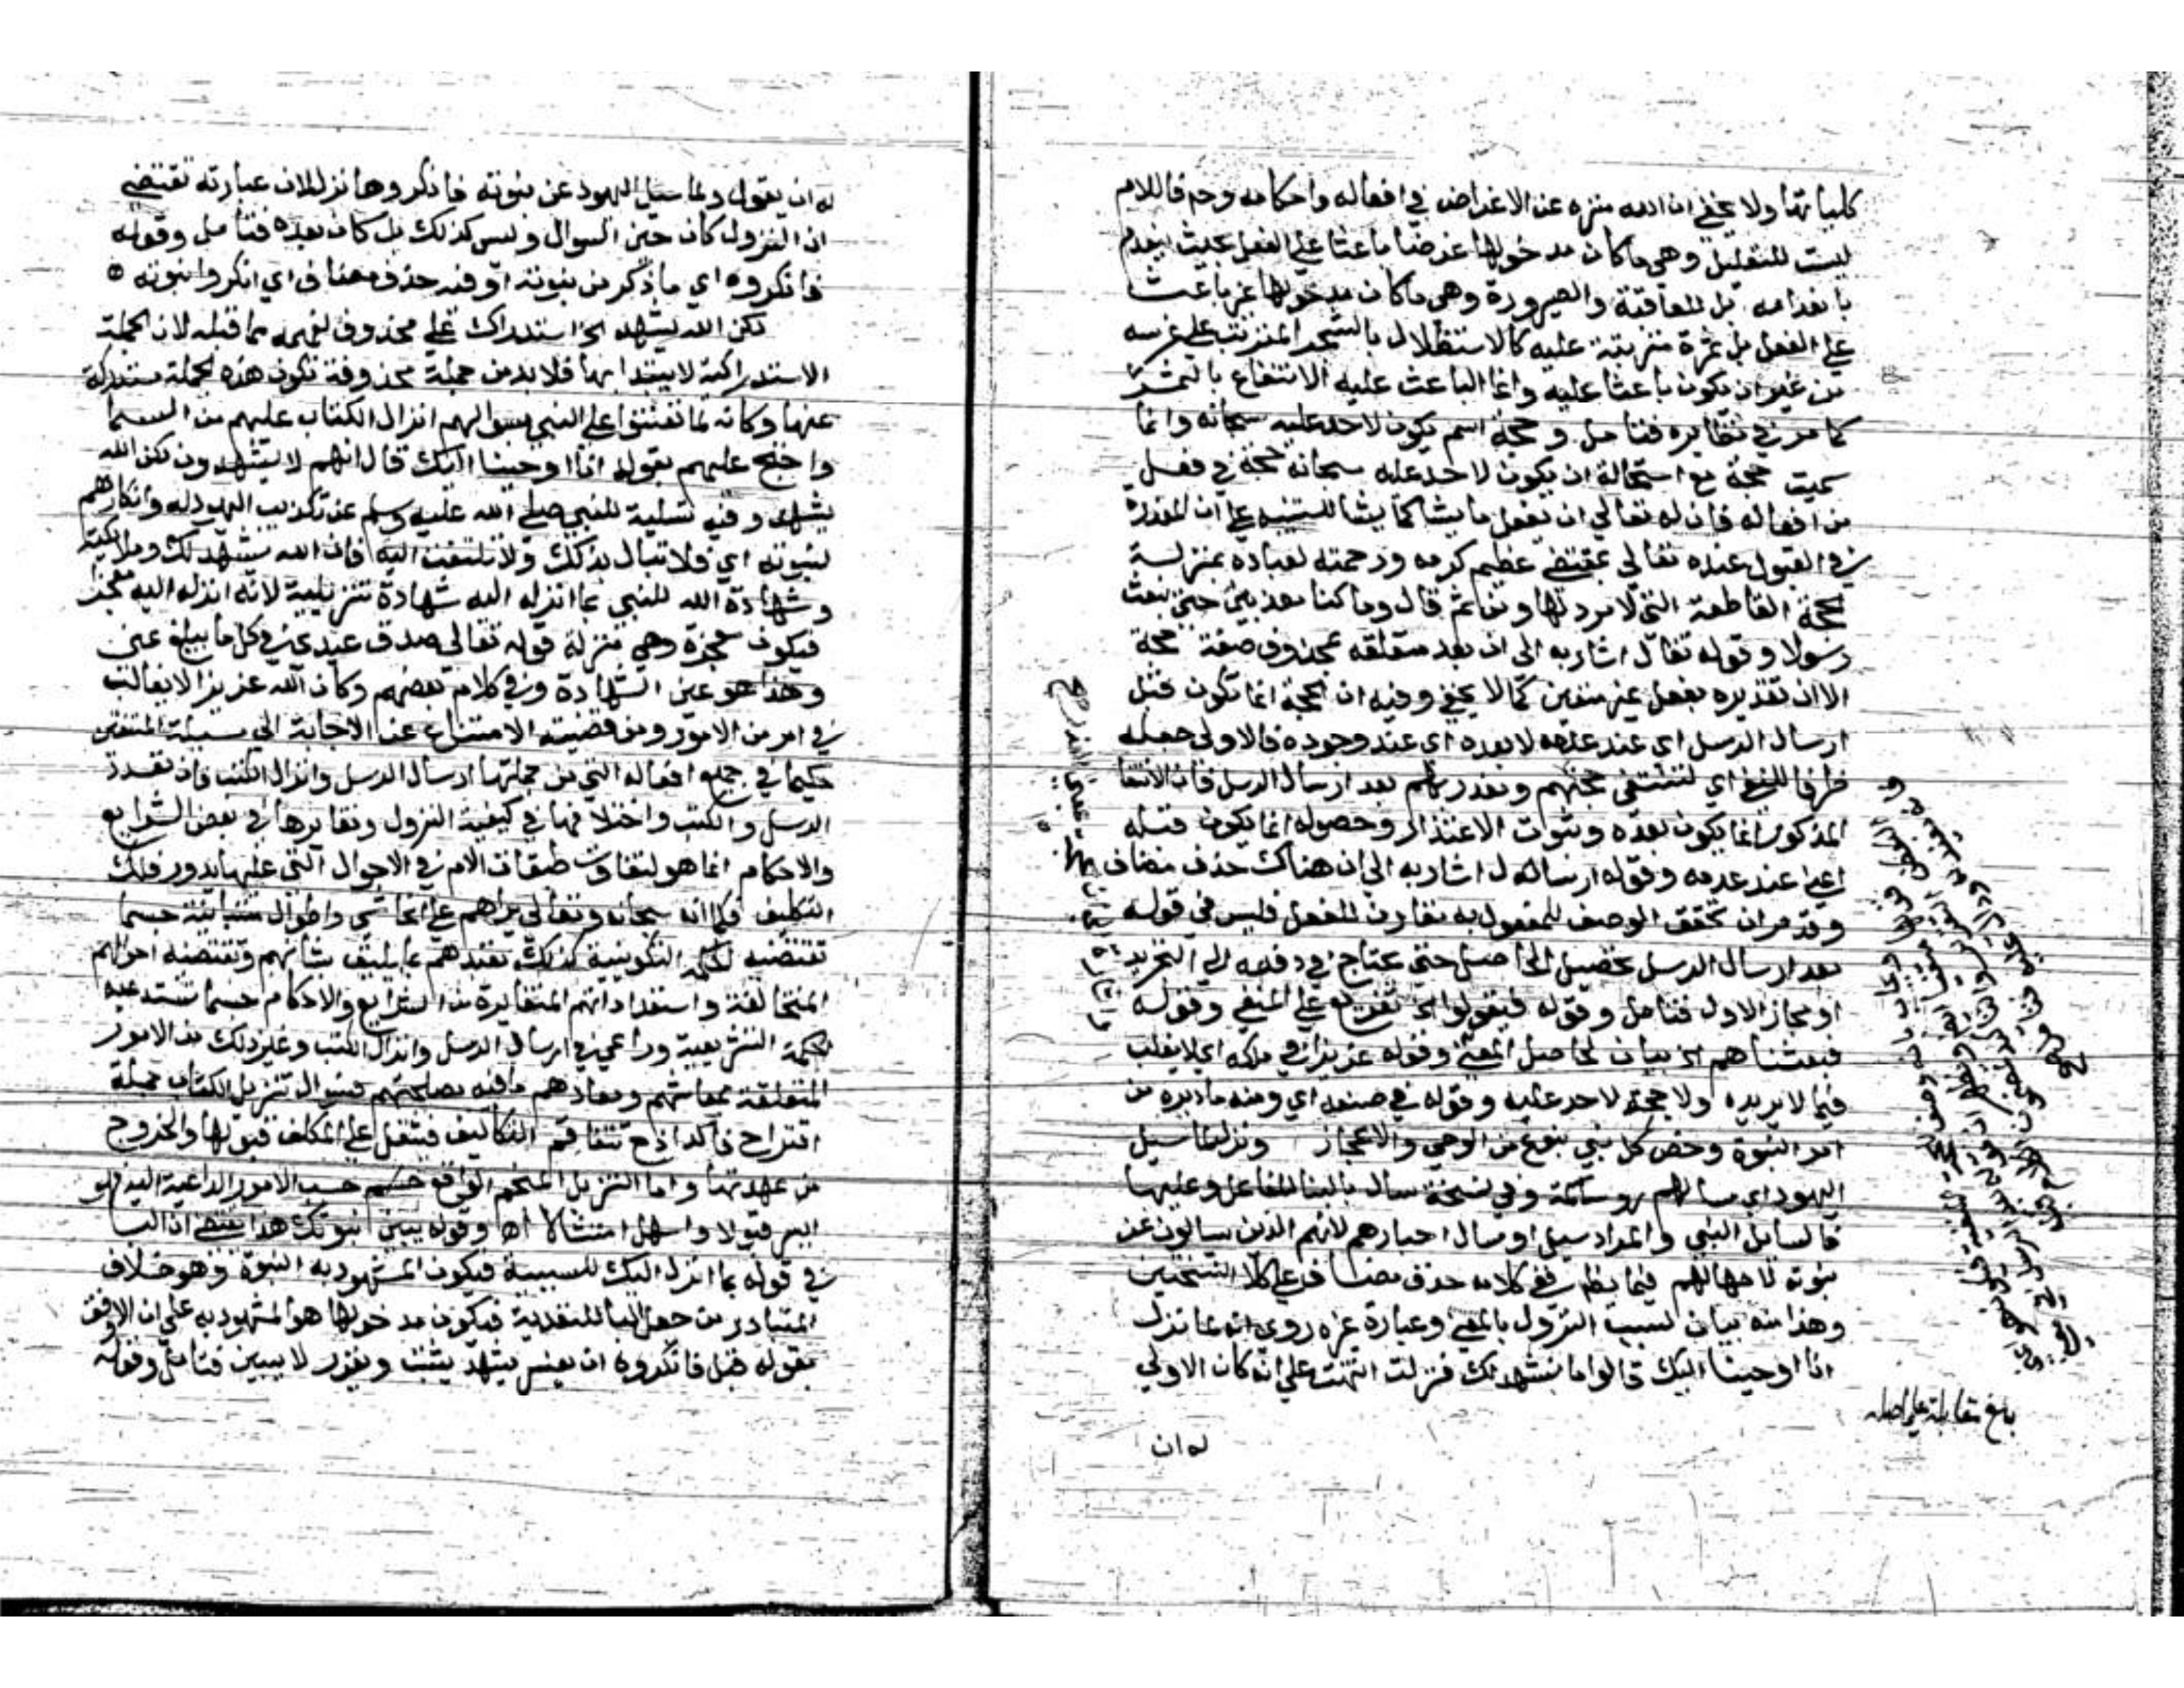 كلياتها ولا يخفى ان الله منزه عن الاغراض في افعاله واحكامه وح فاللام
ليست للتعليل وهي ما كان مدخولها غرضا باعثا على الفعل بحيث ينعدم
بانعدامه بل للعاقبة والصيرورة وهي ما كان مدخولها غير باعث
على الفعل بل ثمرة مترتبة عليه كالاستظلال بالشجر المترتب على غرسه
من غير ان يكون باعثا عليه وانما الباعث عليه الانتفاع بالثمر
كما مر في نظايره فتامل وحجة اسم يكون لاحد عليه سبحانه وانما
سميت حجة مع استحالة ان يكون لاحد عليه سبحانه حجة في فعل
من افعاله فان له تعالى ان يفعل ما يشا كما يشا للتنبيه على ان المعذرة
في القبول عنده تعالى بمقتضى عظيم كرمه ورحمته لعباده بمنزلة
الحجة القاطعة التي لا مرد لها ومن ثم قال وما كنا معذبين حتى نبعث
رسولا وقوله تقال اشار به الى ان بعد متعلقه بمحذوف صفة حجة
الا ان تقديره بفعل غير متعين كما لا يخفى وفيه ان الحجة انما تكون قبل
ارسال الرسل اي عند عدمه لا بعده اي عند وجوده فالاولى جعله
ظرفا للنفي اي لتنتفي حجتهم ومعذرتهم بعد ارسال الرسل فان الانتفا
المذكور انما يكون بعده وثبوت الاعتذار وحصوله انما يكون قبله
اعني عند عدمه وقوله ارسال اشار به الى ان هناك حذف مضاف
وقد مر ان تحقق الوصف للمفعول به مقارن للفعل فليس في قوله
بعد ارسال الرسل تحصيل الحاصل حتى يحتاج في دفعه الى التجريد
او مجاز الاول فتامل وقوله فيقولوا الخ تفريع على المنفي وقوله
فبعثناهم الخ بيان لحاصل المعنى وقوله عزيزا في ملكه اي لا يغلب
فيما لا يريده ولا حجة لاحد عليه وقوله في صنعه اي ومنه ما دبره من
امر النبوة وخص كل نبي بنوع من الوحي والاعجاز ونزل لما سيل
اليهود اي سالهم وفي نسخة سال بالبنا للفاعل وعليها
فالسايل النبي والمراد سيل او سال احبارهم لانهم الذين يسالون عن
نبوته لا جهالهم فيما يظهر ففي كلامه حذف مضاف على كلا النسختين
وهذا منه بيان لسبب النزول بالمعنى وعبارة غيره روي انه لما نزل
انا اوحينا اليك قالوا ما نشهد لك فنزلت انتهت على انه كان الاولى
له ان
بلغ مقابلة على اصله
له ان يقول ولما سيل اليهود عن نبوته فانكروها نزل لان عبارته تقتضي
ان النزول كان حين السوال وليس كذلك بل كان بعده فتامل وقوله
فانكروه اي ما ذكر من نبوته او فيه حذف مضاف اي انكروا نبوته
لكن الله يشهد الخ استدراك على محذوف لفهمه مما قبله لان الجملة
الاستدراكية لا يبتدا بها فلا بد من جملة محذوفة تكون هذه الجملة مستدركة
عنها وكانه لما تعنتوا على النبي بسوالهم انزال الكتاب عليهم من السما
واحتج عليهم بقوله انا اوحينا اليك قال انهم لا يشهدون لكن الله
يشهد وفيه تسلية للنبي صلى الله عليه وسلم عن تكذيب اليهود له وانكارهم
لنبوته اي فلا تبال بذلك ولا تلتفت اليه فان الله يشهد لك وملايكته
وشهادة الله للنبي بما انزله اليه شهادة تنزيلية لانه انزله اليه معجز
فيكون معجزة وهي منزلة قوله تعالى صدق عبدي في كل ما يبلغ عني
وهذا هو عين الشهادة وفي كلام بعضهم وكان الله عزيزا لا يغالب
في امر من الامور ومن قضيته الامتناع عن الاجابة الى مسيلة المتعنتين
حكيما في جميع افعاله التي من جملتها ارسال الرسل وانزال الكتب فان تعدد
الرسل والكتب واختلافها في كيفية النزول وتغايرها في بعض الشرايع
والاحكام انما هو لتفاوت طبقات الامم في الاحوال التي عليها يدور فلك
التكليف فكما انه سبحانه وتعالى براهم على انحا شتى واطوار متباينة حسبما
تقتضيه الحكمة التكوينية كذلك تعبدهم بما يليق بشانهم وتقتضيه احوالهم
المتخالفة واستعداداتهم المتغايرة من الشرايع والاحكام حسبما تستدعيه
الحكمة التشريعية وراعى في ارسال الرسل وانزال الكتب وغير ذلك من الامور
المتعلقة بمعاشهم ومعادهم ما فيه مصلحتهم فسوال تنزيل الكتاب جملة
اقتراح فاسد اذ ح تتفاقم التكاليف فيثقل على المكلف قبولها والخروج
من عهدتها واما التنزيل المنجم الواقع حسب الامور الداعية اليه فهو
ايسر قبولا واسهل امتثالا اه وقوله يبين نبوتك هذا يقتضي ان البا
في قوله بما انزل اليك للسببية فيكون المشهود به النبوة وهو خلاف
المتبادر من جعل البا للتعدية فيكون مدخولها هو المشهود به على ان الاوفق
بقوله قبل فانكروه ان يفسر يشهد بيثبت ويقرر لا يبين فتامل وقوله